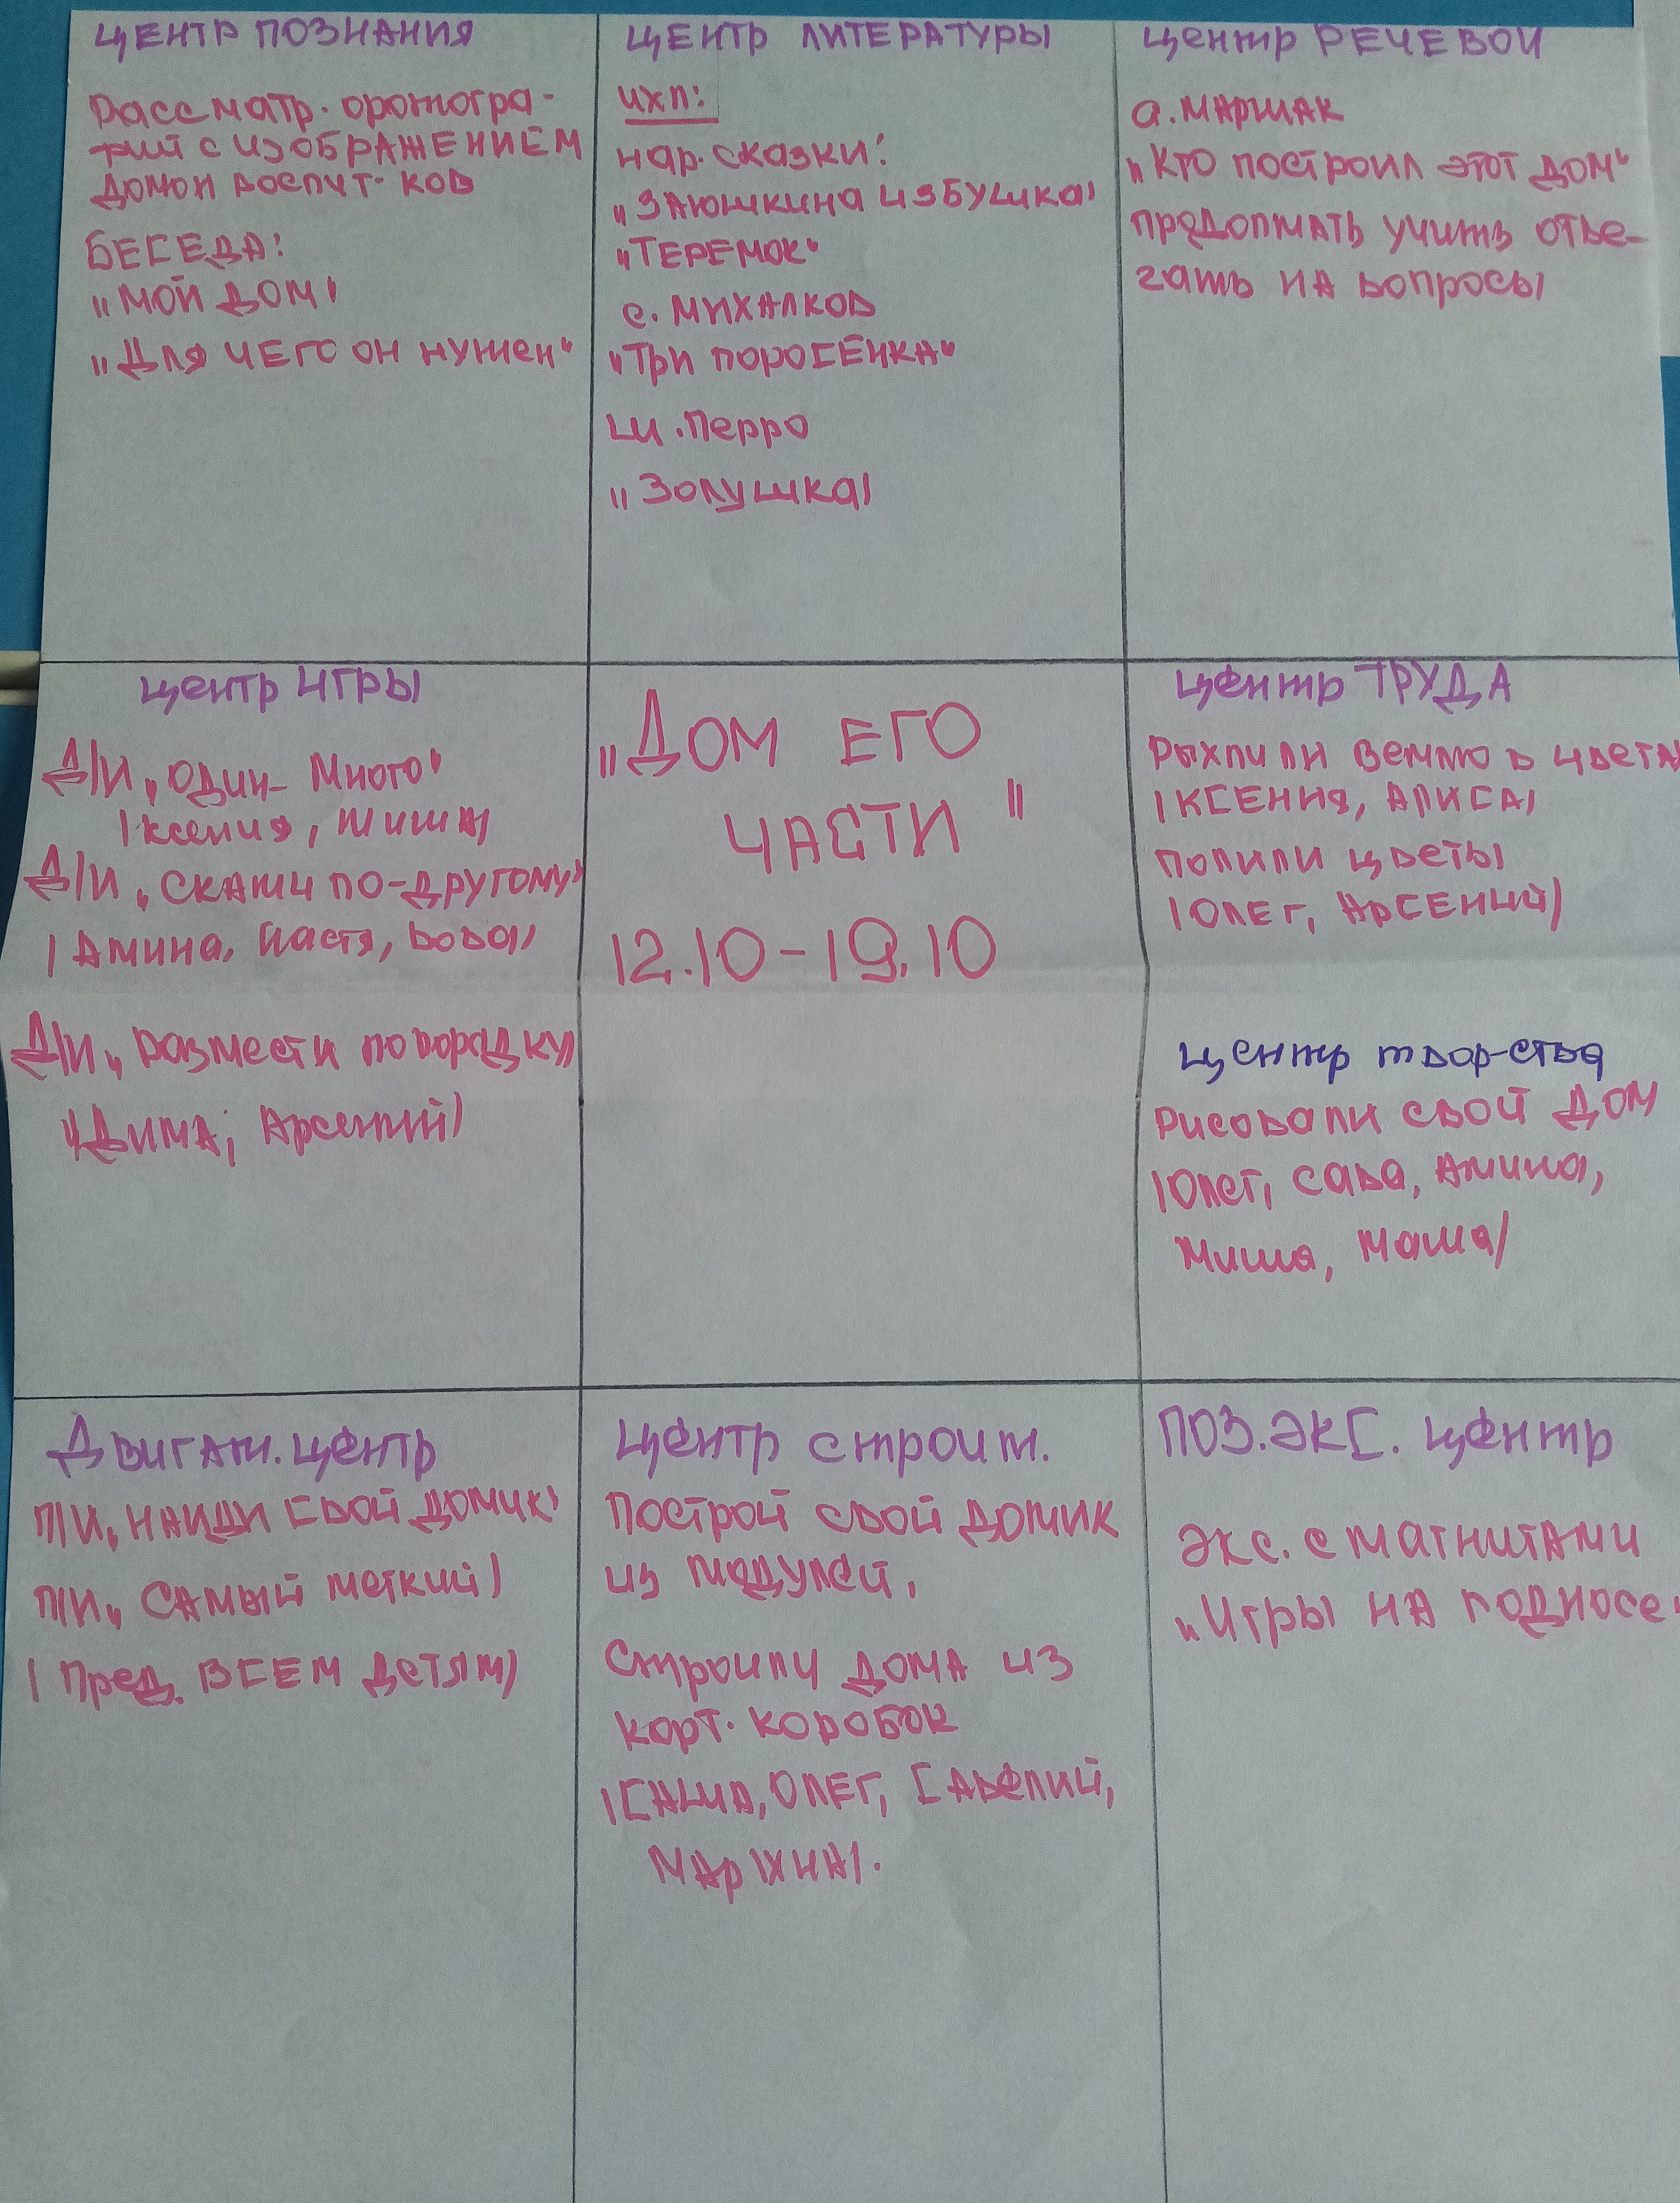 ЦЕНТР ПОЗНАНИЯ
Рассматр. фотогра-
фий с ИЗОБРАЖЕНИЕМ
ДОМОИ воспит-ков
БЕСЕДА:
"МОЙ ДОМ"
"Для ЧЕГО ОН НУЖЕН"
ЦЕНТР ЛИТЕРАТУРЫ
ЧХЛ:
Нар. сказки:
"ЗАЮШКИНА ИЗБУШКА"
"ТЕРЕМОК"
с. МИХАЛКОВ
"Три ПОРОСЁНКА"
Ш. Перро
"Золушка"
Центр РЕЧЕВОЙ
а. МАРШАК
"КТО ПОСТРОИЛ ЭТОТ ДОМ"
продолжать учить отве-
чать НА вопросы
Центр ИГРЫ
Д/И "один- Много"
/Ксения, Миша/
Д/И "СКАЖИ ПО-ДРУГОМУ"
/Амина, Настя, Вова/
Д/И "размести по порядку"
/Дима, Арсений/
"ДОМ ЕГО
ЧАСТИ"
12.10-19.10
Центр ТРУДА
Рыхлили землю в цвета
/КСЕНИЯ, АЛИСА/
полили цветы
/ОЛЕГ, АРСЕНИЙ/
Центр твор-ства
Рисовали свой ДОМ
/Олег, Сава, Амина,
Миша, Маша/
Двигат. центр
П/И "НАЙДИ СВОЙ ДОМИК"
П/И "САМЫЙ меткий"
/Пред. ВСЕМ детям/
Центр строит.
Построй свой ДОМИК
из модулей.
Строили ДОМА ИЗ
карт. КОРОБОК
/САША, ОЛЕГ, САВЕЛИЙ,
МАРЬЯНА/.
ПОЗ. ЭКС. центр
Экс. с МАГНИТАМИ
"Игры НА подносе"